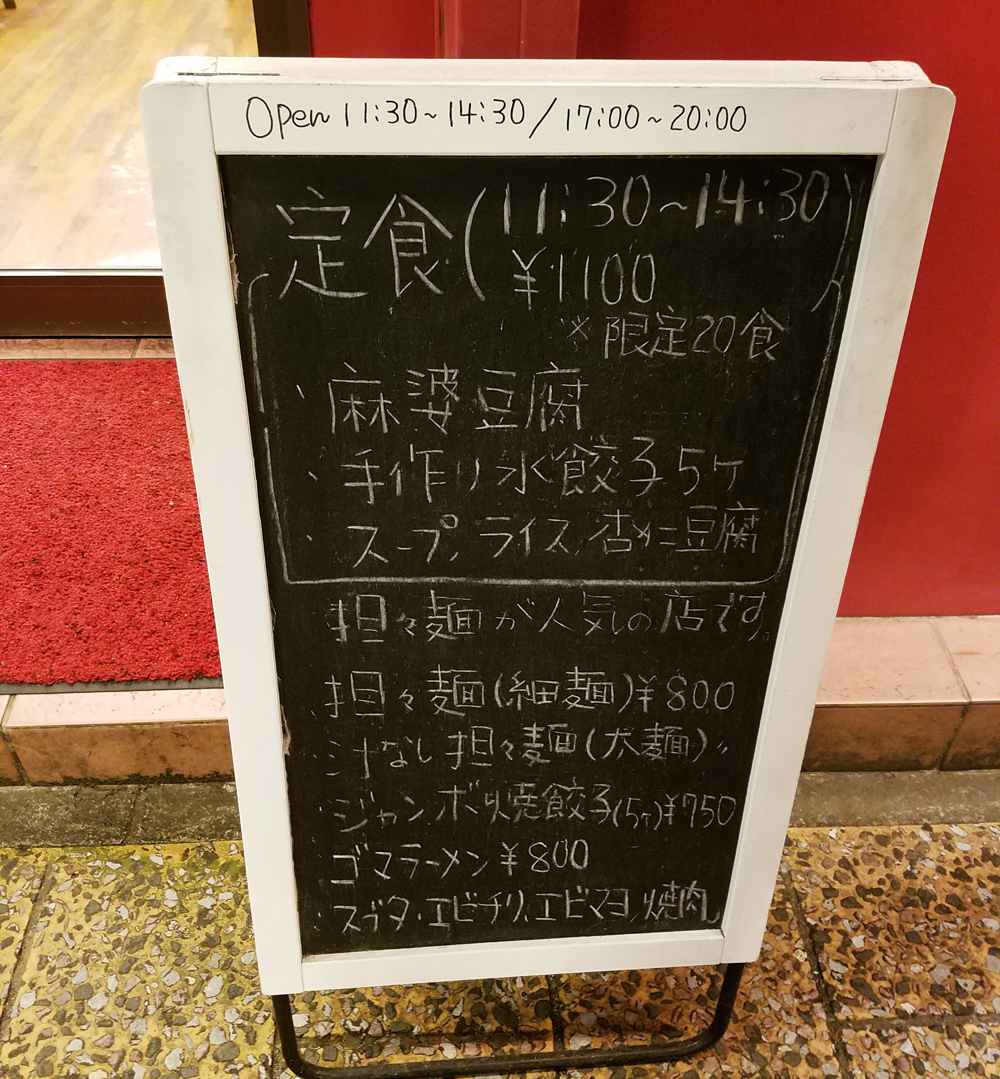 Open 11:30~14:30/17:00~20:00
定食(11:30~14:30)
¥1100
※限定20食
・麻婆豆腐
・手作り水餃子5ヶ
・スープ,ライス,杏仁豆腐
担々麺が人気の店です。
・担々麺(細麺)¥800
・汁なし担々麺(太麺)〃
・ジャンボ焼餃子(5ヶ)¥750
・ゴマラーメン¥800
・スブタ,エビチリ,エビマヨ,焼肉